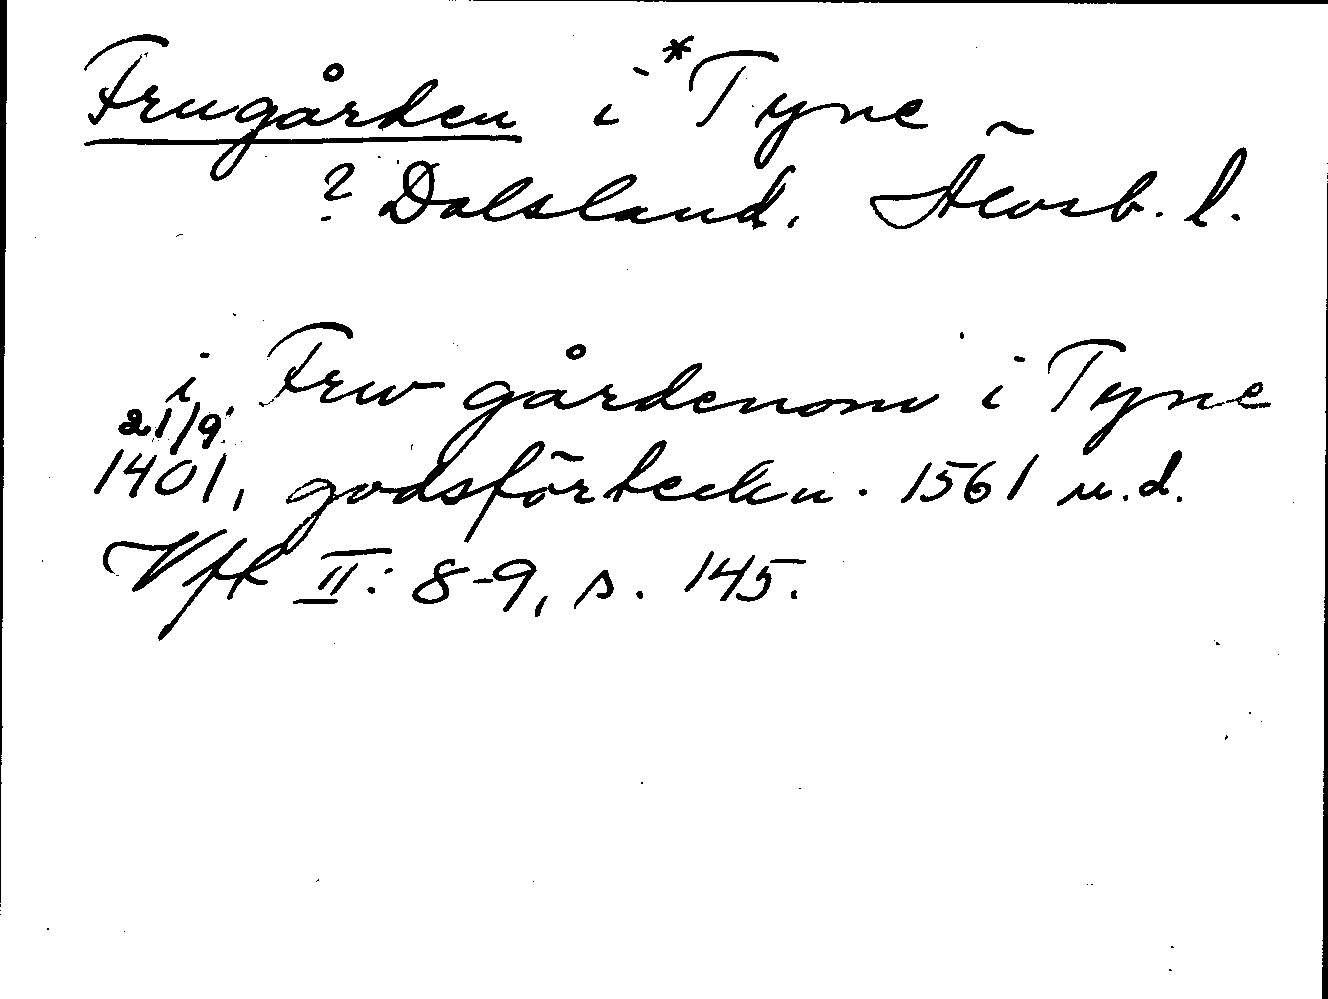 Frugården i *Tyne
? Dalsland. Älvsb. l.
i Frw gårdenom i Tyne
21/9
1401, godsförteckn. 1561 u.d.
Vfft II: 8-9, s. 145.